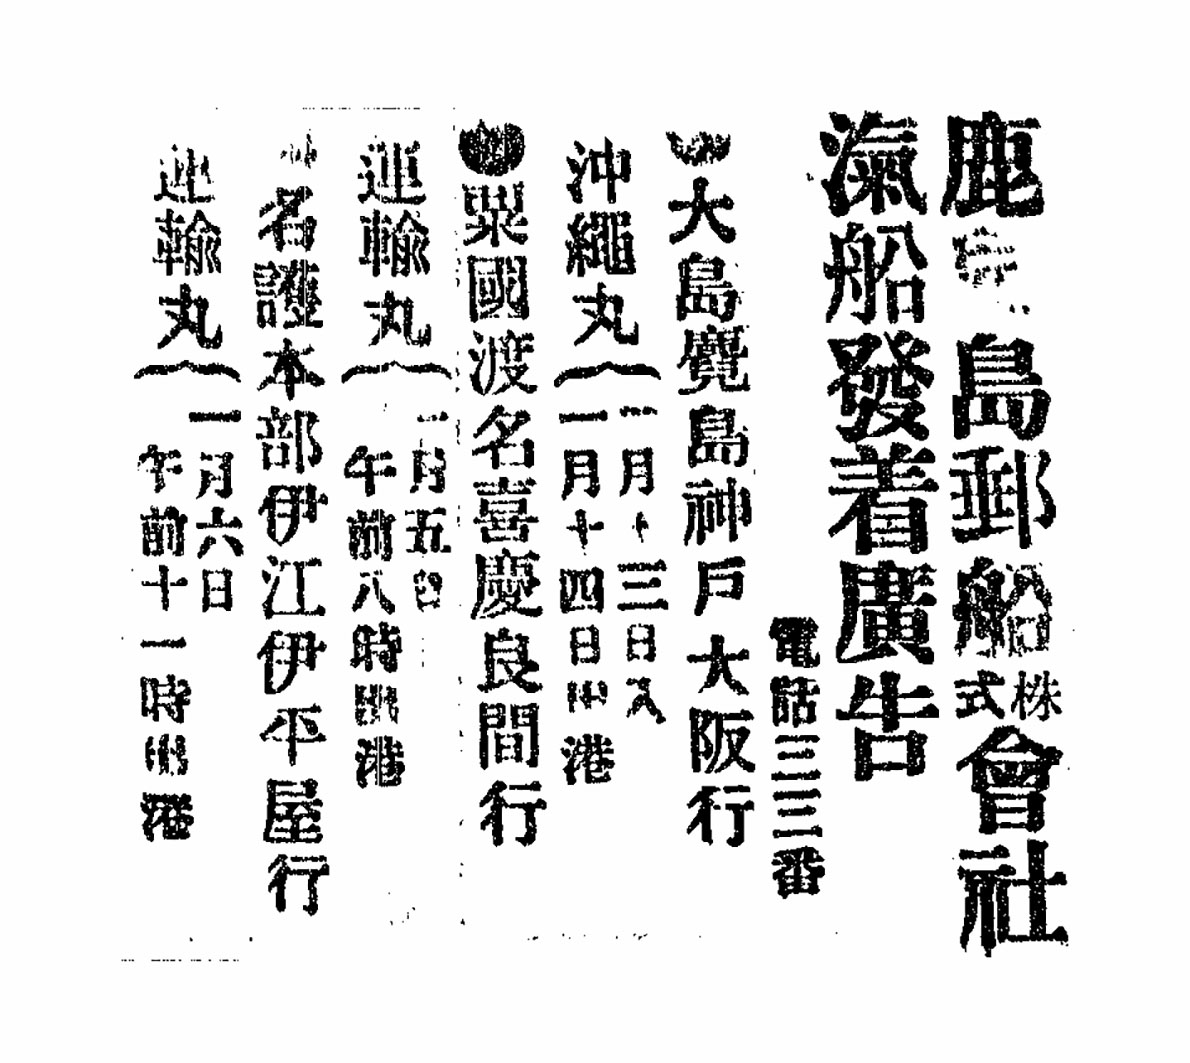 鹿兒島郵船株式會社
滊船發着廣告
電話三三番
大島鹿兒島神戸大阪行
沖繩丸
一月十三日入
一月十四日出港
粟國渡名喜慶良間行
運輸丸
一月五日
午前八時出港
名護本部伊江伊平屋行
運輸丸
一月六日
午前十一時出港